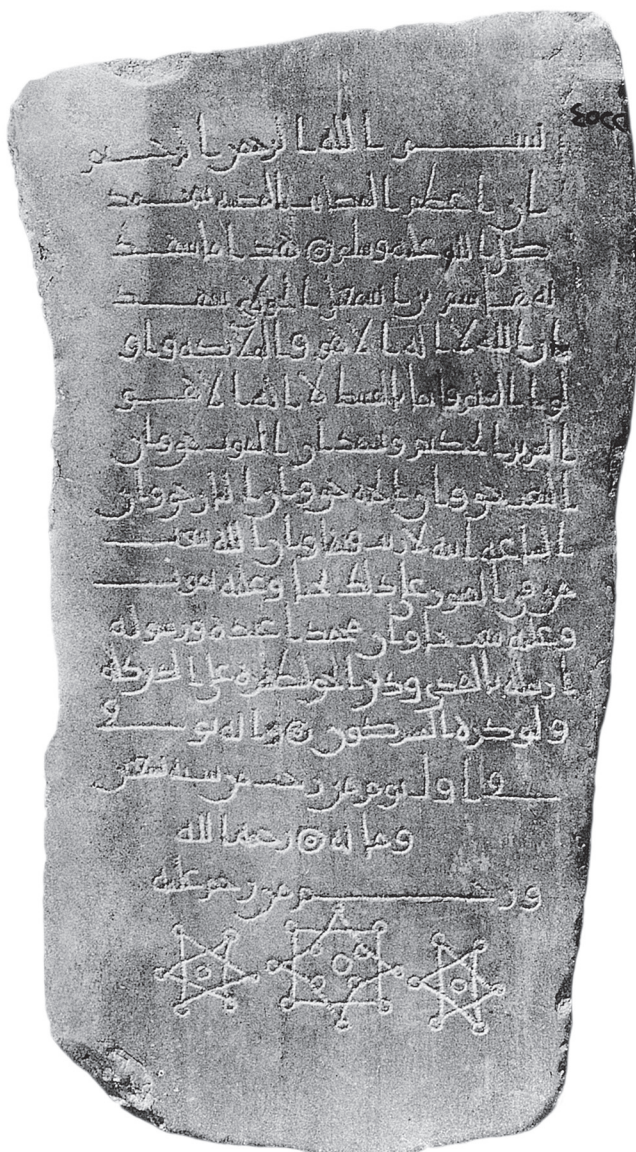 بسم الله الرحمن الرحيم
ان اعظم المصايب المصيبه بمحمد
صلى الله عليه وسلم هذا ما يشهد
به هاشم بن اسمعيل يشهد
ان الله لا اله الا هو والملائكه واو
لوا العلم قائما بالقسط لا اله الا هو
العزيز الحكيم ويشهد ان الموت حق وان
البعث حق وان الجنه حق وان النار حق وان
الساعه اتيه لا ريب فيها وان الله يبعث
من في القبور على ذلك يحيا وعليه يموت
وعليه يبعث حيا وان محمدا عبده ورسوله
ارسله بالهدى ودين الحق ليظهره على الدين كله
ولو كره المشركون وانه توفى
اول يوم من رجب من سنه
رحم الله
ورحم من ترحم عليه